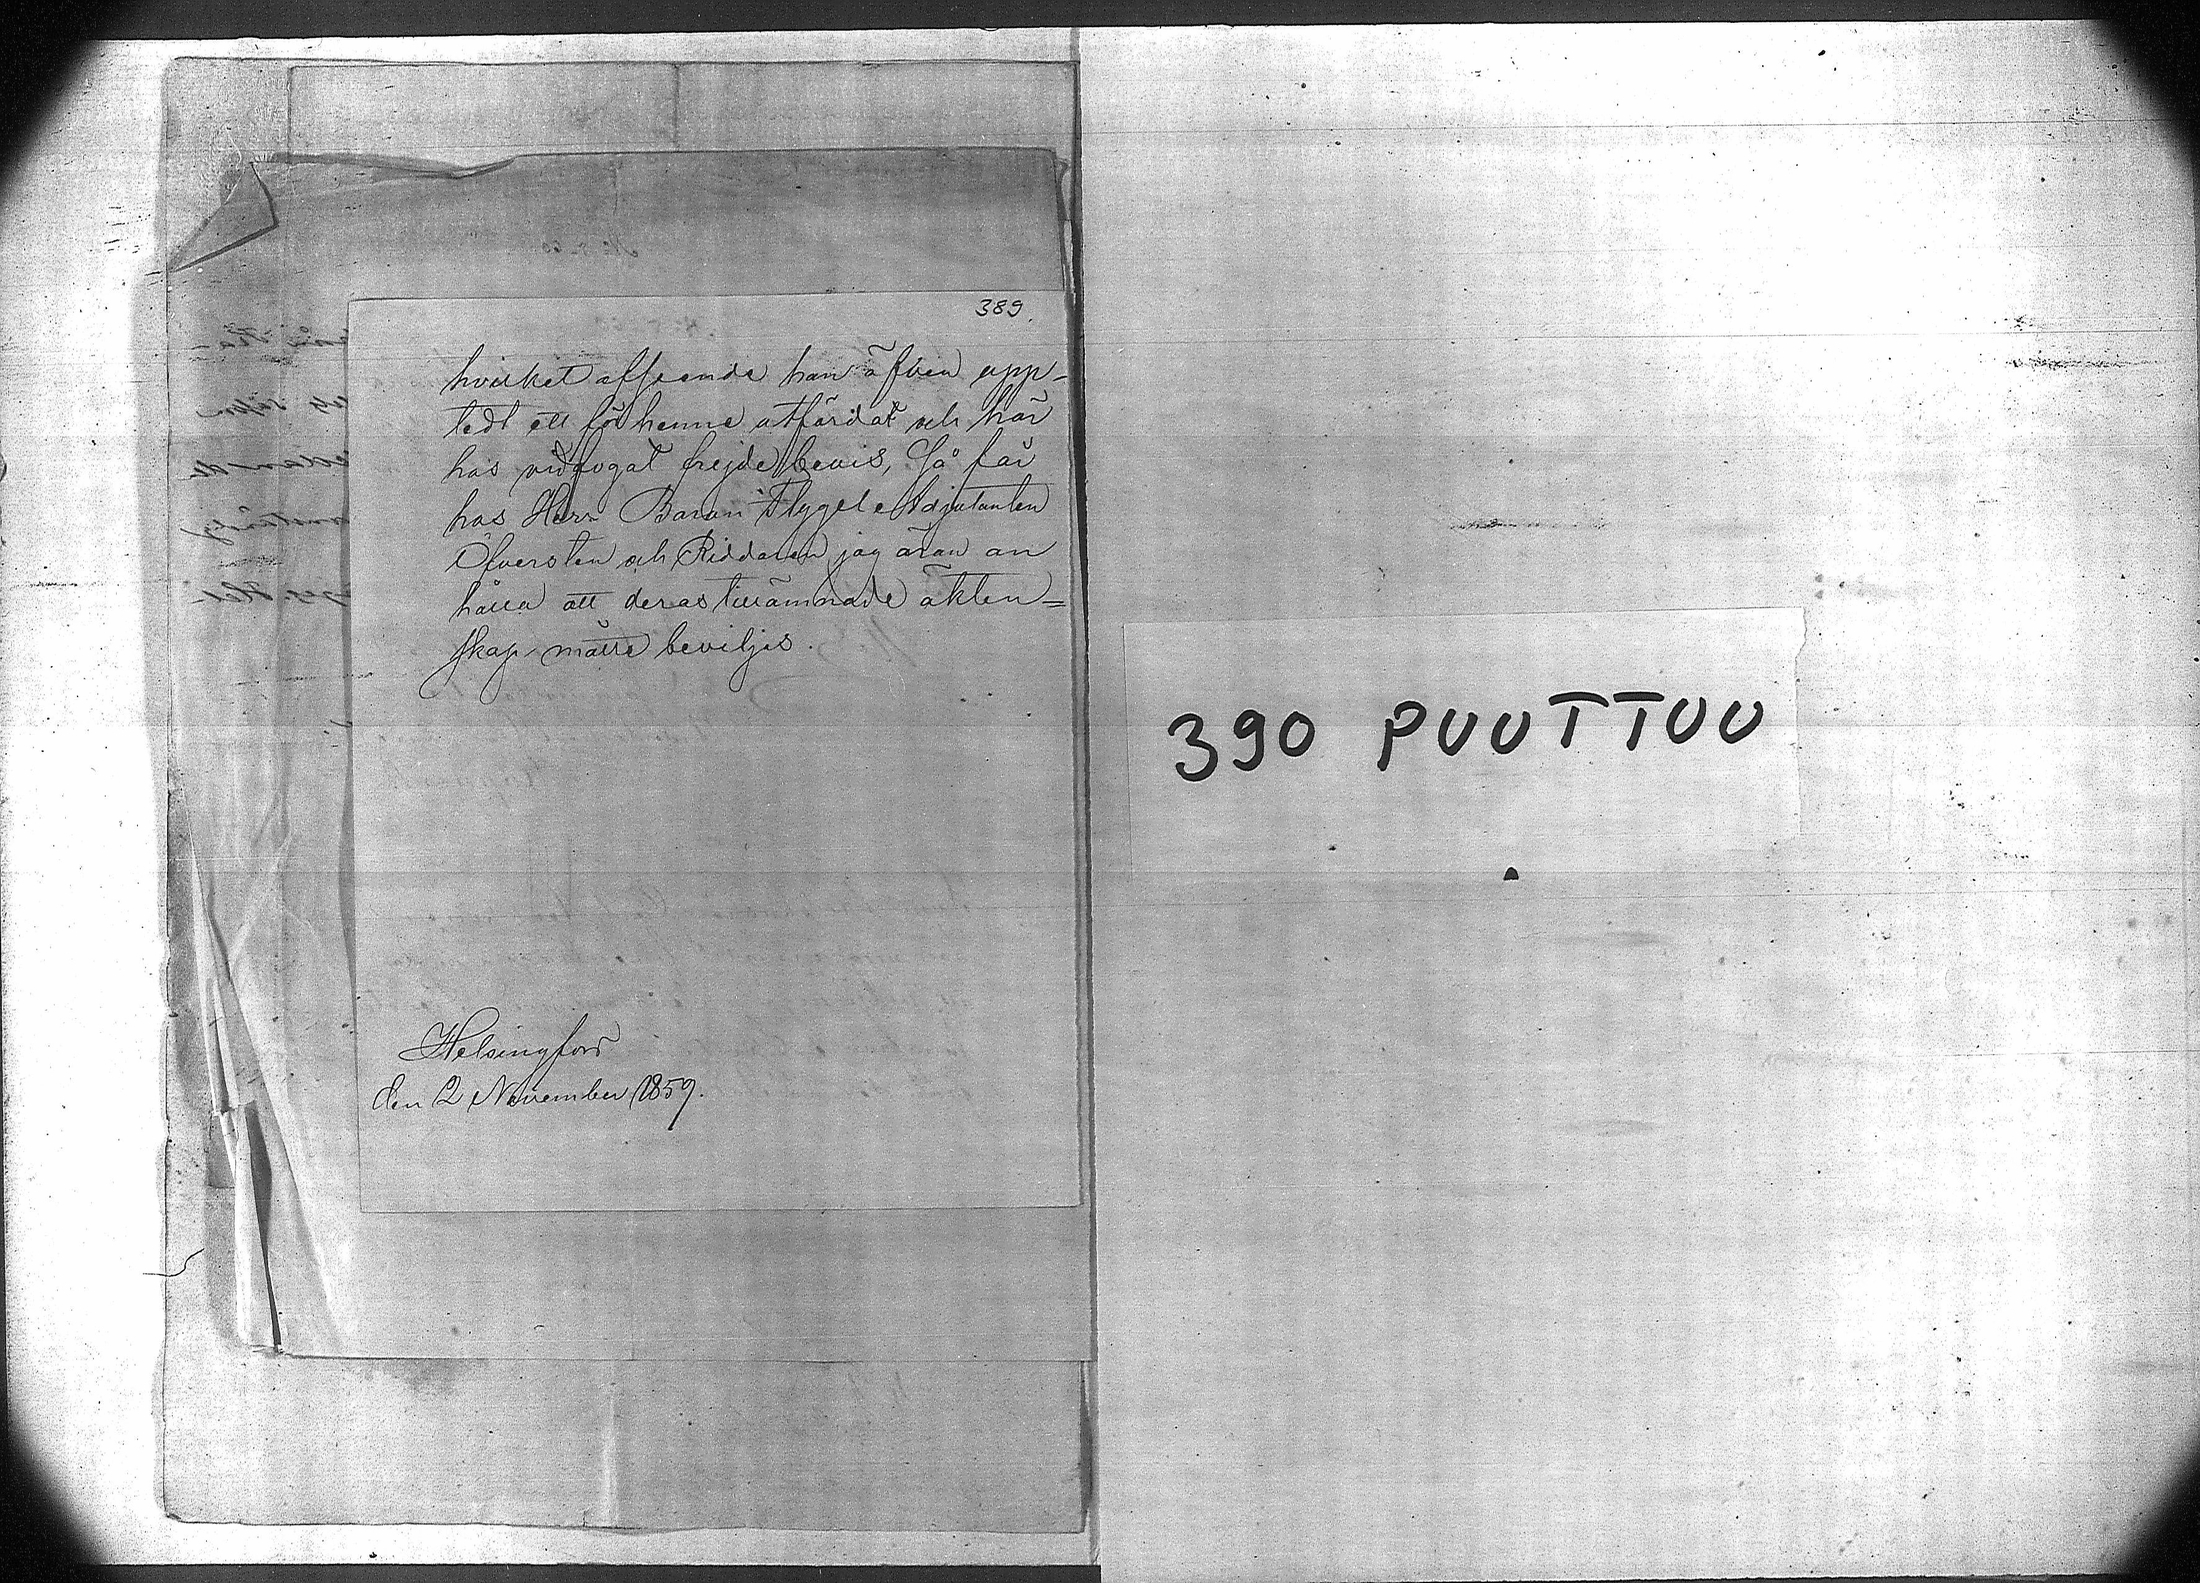 389.
hvilket afseende han äfven upp-
tedt ett för henne utfärdat och här
hos vidfogat frejdebevis, Så får
hos Herr Baron Flygel Adjutanten
Öfversten och Riddaren jag äran an
hålla att deras tillämnade äkten=
skap måtte beviljas.
Helsingfors
den 2 November 1859.
390 PUUTTUU